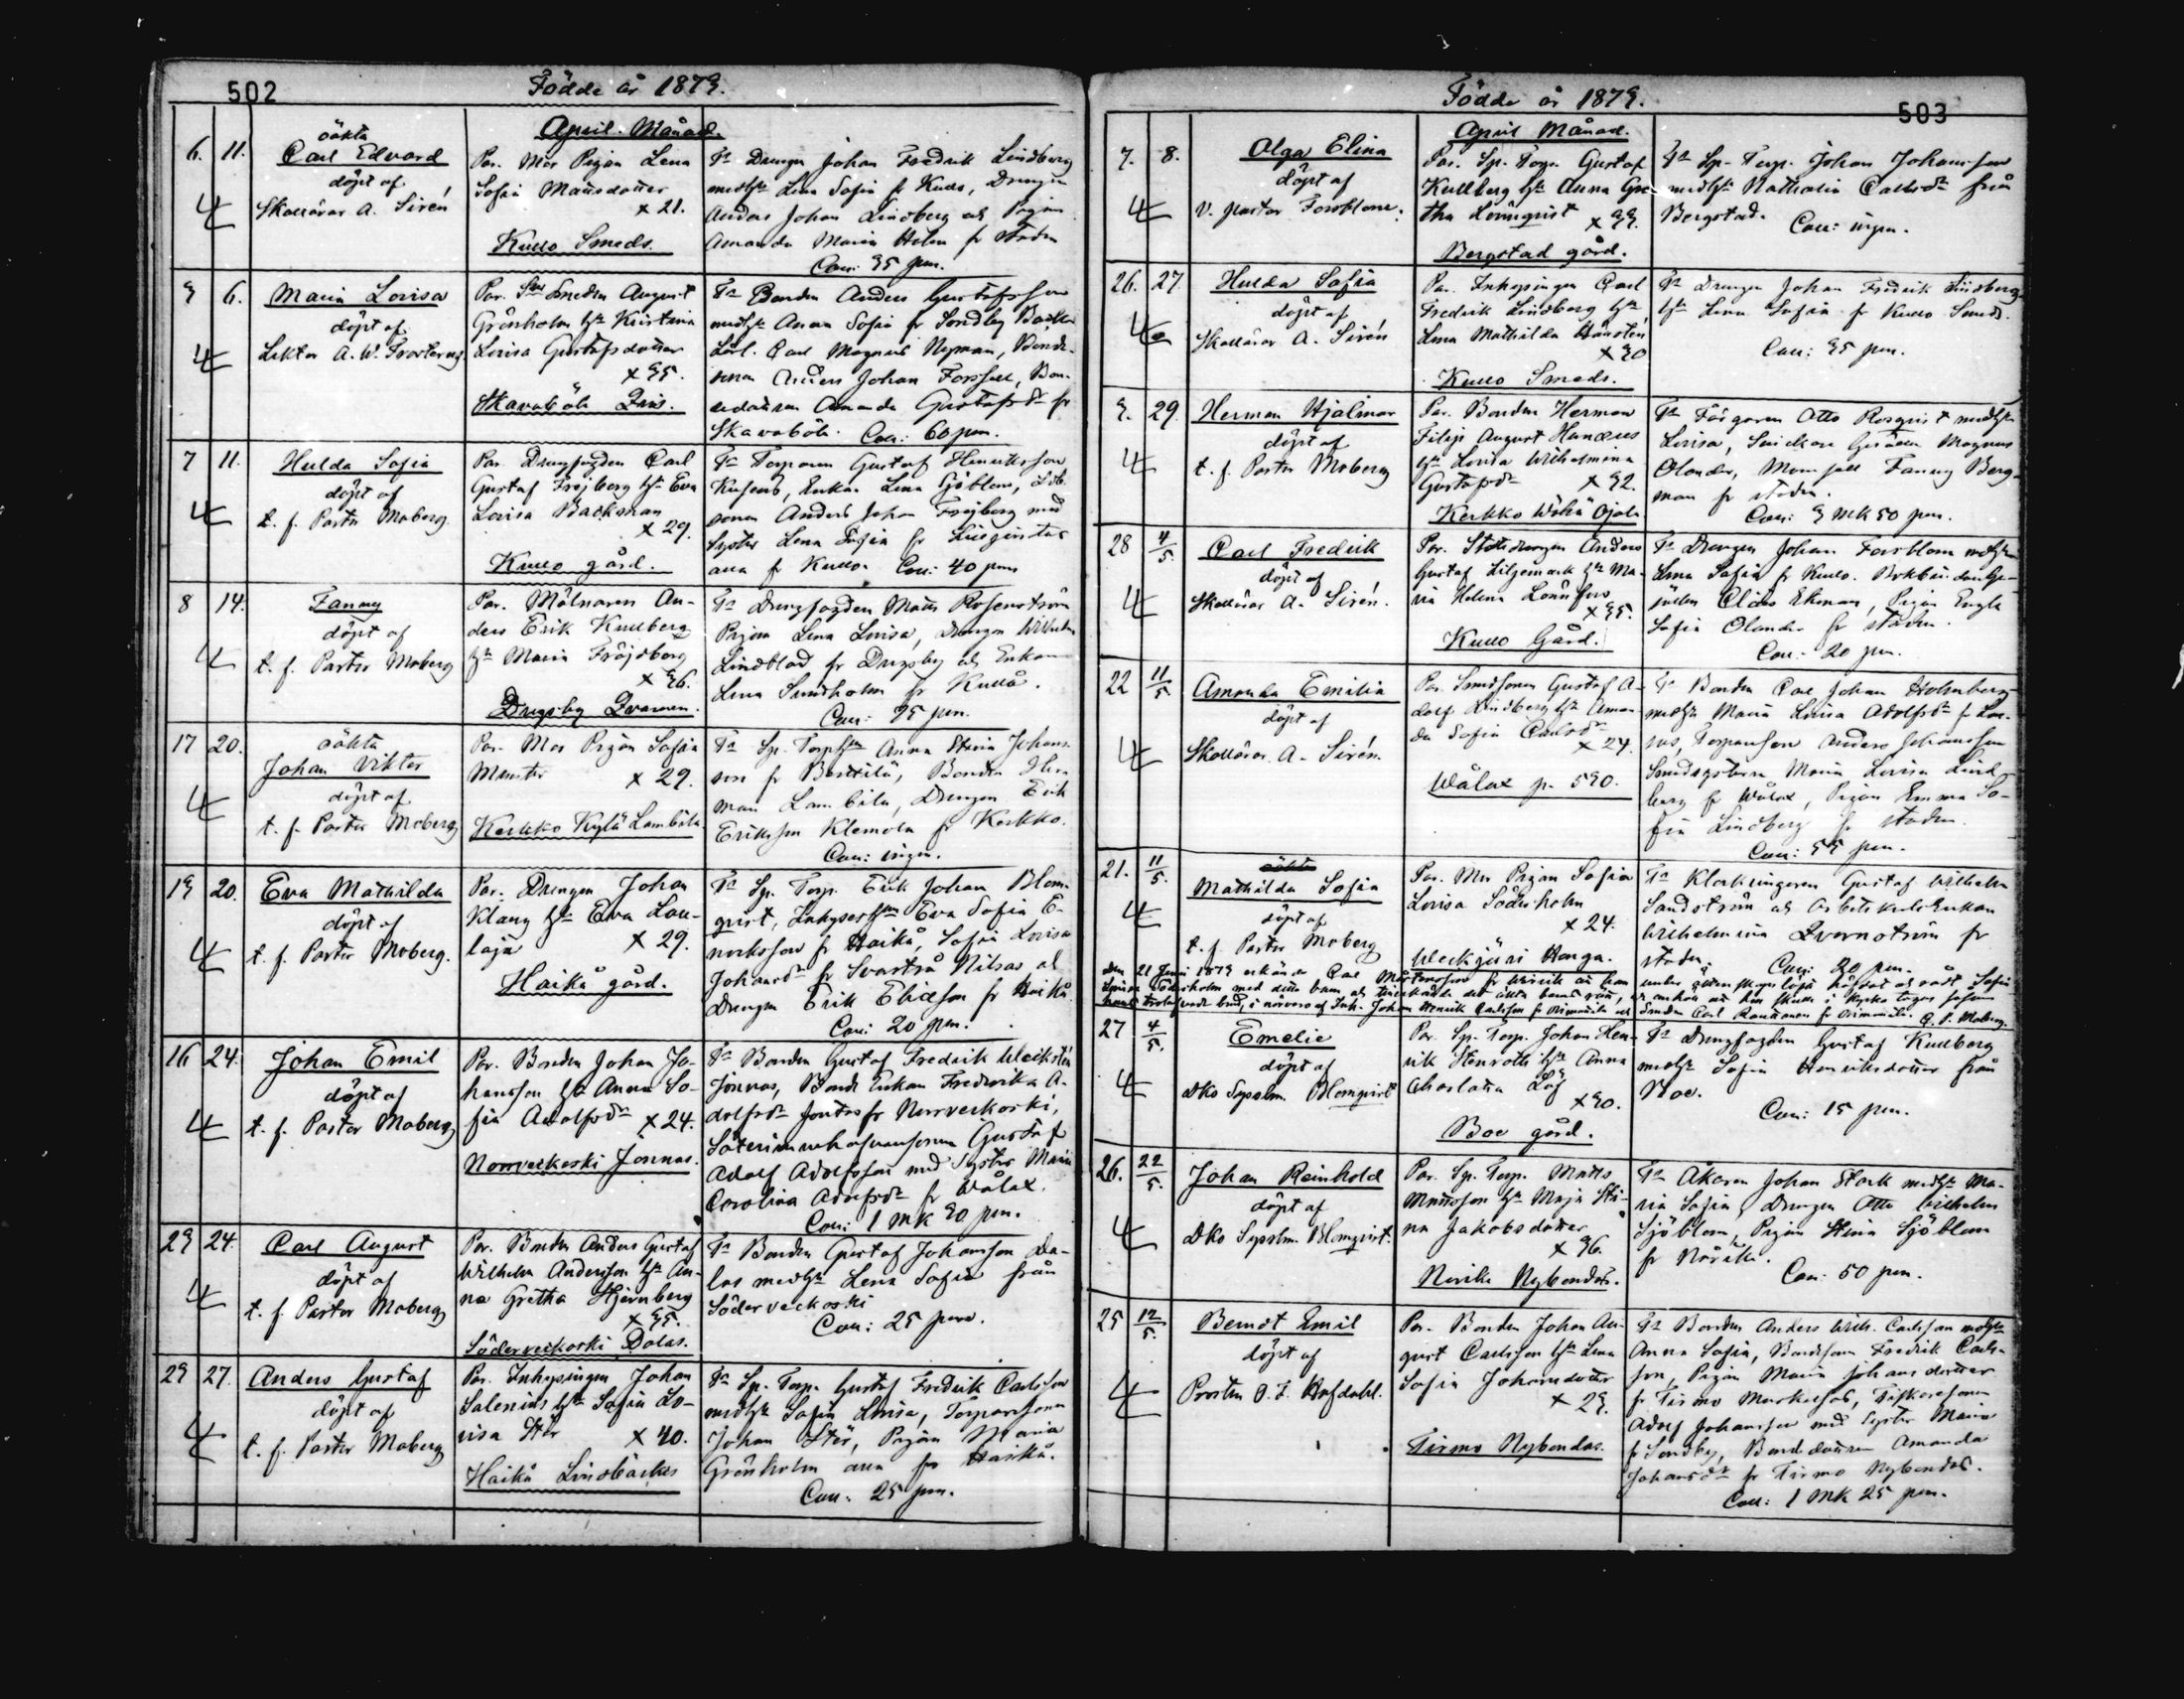 502
Födde år 1879.
April Månad.
6. 11.
oäkta
Carl Edvard
döpt af
Skollärar A. Sirén
Par. Mor Pigan Lena
Sofia Mattsdotter
x 21.
Kullo Smeds.
Fr Drengen Johan Fredrik Lindberg
medhu Lena Sofia fr Kullo, Drengen
Anders Johan Lindberg och Pigan
Amanda Maria Holm fr staden
Coll: 35 pen.
3 6.
Maria Lovisa
döpt af
Lektor A. W.
Par. Smeden August
Grönholm hu Kristina
Lovisa Gustafsdotter
x 35.
Skavaböle
Fr Bonden Anders Gustafsson
medhu Anna Sofia fr Sondby
Carl Magnus Nyman, Bonde-
sonen Anders Johan Forssell, Bon-
dedottren Amanda Gustafsdr fr
Skavaböle. Coll: 60 pen.
7 11.
Hulda Sofia
döpt af
t. f. Pastor Moberg.
Par. Drengfogden Carl
Gustaf Frejberg hu Eva
Lovisa Backman
x 29.
Kullo gård.
Fr Torparen Gustaf Henriksson
Enkan Lena Sjöblom,
sonen Anders Johan Frejberg med
syster Lena Sofia fr
alla fr Kullo. Coll: 40 pen
8 14.
Fanny
döpt af
t. f. Pastor Moberg
Par. Mölnaren An-
ders Erik Kullberg
hu Maria Fröjdberg
x 36.
Drägsby Qvarnen.
Fr Drengfogden Matts Rosenström
Pigan Lena Lovisa, Drengen Wilhelm
Lindblad fr Drägsby och Enkan
Lena Sundholm fr Kullå.
Coll: 75 pen.
17 20.
oäkta
Johan Viktor
döpt af
t. f. Pastor Moberg
Par. Mor Pigan Sofia
Munter x 29.
Kerkko Kylä Lambila.
Fr Sp. Torphu Anna Stina Johans-
son fr Bastila, Bonden Her-
man Lambila, Drengen Erik
Eriksson Klemola fr Kerkko.
Coll: ingen.
19 20.
Eva Mathilda
döpt af
t. f. Pastor Moberg.
Par. Drengen Johan
Klang hu Eva Lou-
laja x 29.
Haikå gård.
Fr Sp. Torp. Erik Johan Blom-
qvist, Inhyseshu Eva Sofia E-
nocksson fr Haikå, Sofia Lovisa
Johansdr fr Svartså Nilsas och
Drengen Erik Eliasson fr Haikå
Coll: 20 pen.
16 24.
Johan Emil
döpt af
t. f. Pastor Moberg
Par. Bonden Johan Jo-
hansson hu Anna So-
fia Adolfsdr x 24.
Norrveckoski Jonnas.
Fr Bonden Gustaf Fredrik Weckstén
Jonnas, Bonde Enkan Fredrika A-
dolfsdr Jontas fr Norrveckoski,
Gustaf
Adolf Adolfsson med syster Maria
Carolina Adolfsdr fr Wålax.
Coll: 1 mk 30 pen.
23 24.
Carl August
döpt af
t. f. Pastor Moberg
Par. Bonden Anders Gustaf
Wilhelm Andersson hu An-
na Gretha Stjernberg
x 35.
Söderveckoski Dalas.
Fr Bonden Gustaf Johansson Da-
las medhu Lena Sofia från
Söderveckoski
Coll: 25 pen.
23 27.
Anders Gustaf
döpt af
t. f. Pastor Moberg
Par. Inhysingen Johan
Salenius hu Sofia Lo-
visa Stör x 40.
Haikå Lindbackas
Fr Sp. Torp. Gustaf Fredrik Carlsson
medhu Sofia Lovisa, Torparsonen
Johan Stör, Pigan Maria
Grönholm alla fr Haikå.
Coll: 25 pen.
503
Födde år 1879.
April Månad.
7. 8.
Olga Elina
döpt af
v. pastor Forsblom.
Par. Sp. Torp. Gustaf
Kullberg hu Anna Gre-
tha Lönnqvist x 33.
Bergstad gård.
Fr Sp. Torp. Johan Johansson
medhu Nathalia Carlsdr från
Bergstad. Coll: ingen.
26. 27.
Hulda Sofia
döpt af
Skollärar A. Sirén
Par. Inhysingen Carl
Fredrik Lindberg hu
Lena Mathilda
x 30
Kullo Smeds.
Fr Drengen Johan Fredrik Lindberg
hu Lena Sofia fr Kullo Smeds.
Coll: 35 pen.
3. 29.
Herman Hjalmar
döpt af
t. f. Pastor Moberg
Par. Bonden Herman
Filip August
hu Lovisa Wilhelmina
Gustafsdr x 32.
Kerkko Wähä Ojala
Fr Färgaren Otto Rosqvist medhu
Lovisa, Snickare Gesällen Magnus
Olander, Mamsell Fanny Berg-
man fr staden.
Coll: 3 mk 50 pen.
28 4/5.
Carl Fredrik
döpt af
Skollärar A. Sirén.
Par. Statdrengen Anders
Gustaf Liljemark hu Ma-
ria Helena Lönnfors
x 35.
Kullo Gård.
Fr Drengen Johan Forsblom medhu
Lena Sofia fr Kullo. Bokbindare Ge-
sällen Elias Ekman, Pigan Engla
Sofia Olander fr staden.
Coll: 20 pen.
22 11/5
Amanda Emilia
döpt af
Skollärar A. Sirén.
Par. Smedsonen Gustaf A-
dolf Lindberg hu Aman-
da Sofia Carlsdr
x 24.
Wålax p. 590.
Fr Bonden Carl Johan Holmberg
medhu Maria Lovisa Adolfsdr fr
Torparsonen Anders Johansson
Maria Lovisa Lind-
berg fr Wålax, Pigan Emma So-
fia Lindberg fr staden.
Coll: 55 pen.
21. 11/5.
oäkta
Mathilda Sofia
döpt af
t. f. Pastor Moberg
Par. Mor Pigan Sofia
Lovisa Söderholm
x 24.
Weckjärvi Hanga.
Fr Klockringaren Gustaf Wilhelm
Sandström och Arbetskarls Enkan
Wilhelmina Qvarnström fr
staden. Coll: 30 pen.
den 21 Juni 1879 erkände Carl Mårtensson fr
Söderholm med detta barn
i närvaro af Inh. Johan Henrik Carlsson fr
G. F. Moberg.
27 4/5.
Emelie
döpt af
Dko Sysslm. Blomqvist
Par. Sp. Torp. Johan Hen-
rik Stenroth hu Anna
Charlotta Löf
x 30.
Boe gård.
Fr Drengfogden Gustaf Kullberg
medhu Sofia Henriksdotter från
Boe.
Coll: 15 pen.
26. 22/5.
Johan Reinhold
döpt af
Dko Sysslm. Blomqvist.
Par. Sp. Torp. Matts
Mattsson hu Maja Sti-
na Jakobsdotter
x 36.
Nerike Nybondas.
Fr Åkaren Johan Stark medhu Ma-
ria Sofia, Drengen Otto Wilhelm
Sjöblom, Pigan Stina Sjöblom
fr Närike.
Coll: 50 pen.
25 12/5.
Berndt Emil
döpt af
Prosten O. I. Hofdahl.
Par. Bonden Johan Au-
gust Carlsson hu Lena
Sofia Johansdotter
x 23.
Tirmo Nybondas.
Fr Bonden Anders Wilh. Carlsson medhu
Anna Sofia, Bondeson Fredrik Carls-
son, Pigan Maria Johansdotter
fr Tirmo Markusas, Fiskaresonen
Adolf Johansson med syster Maria
fr Sondby, Bondedottren Amanda
Johansdr fr Tirmo Nybondas.
Coll: 1 mk 25 pen.